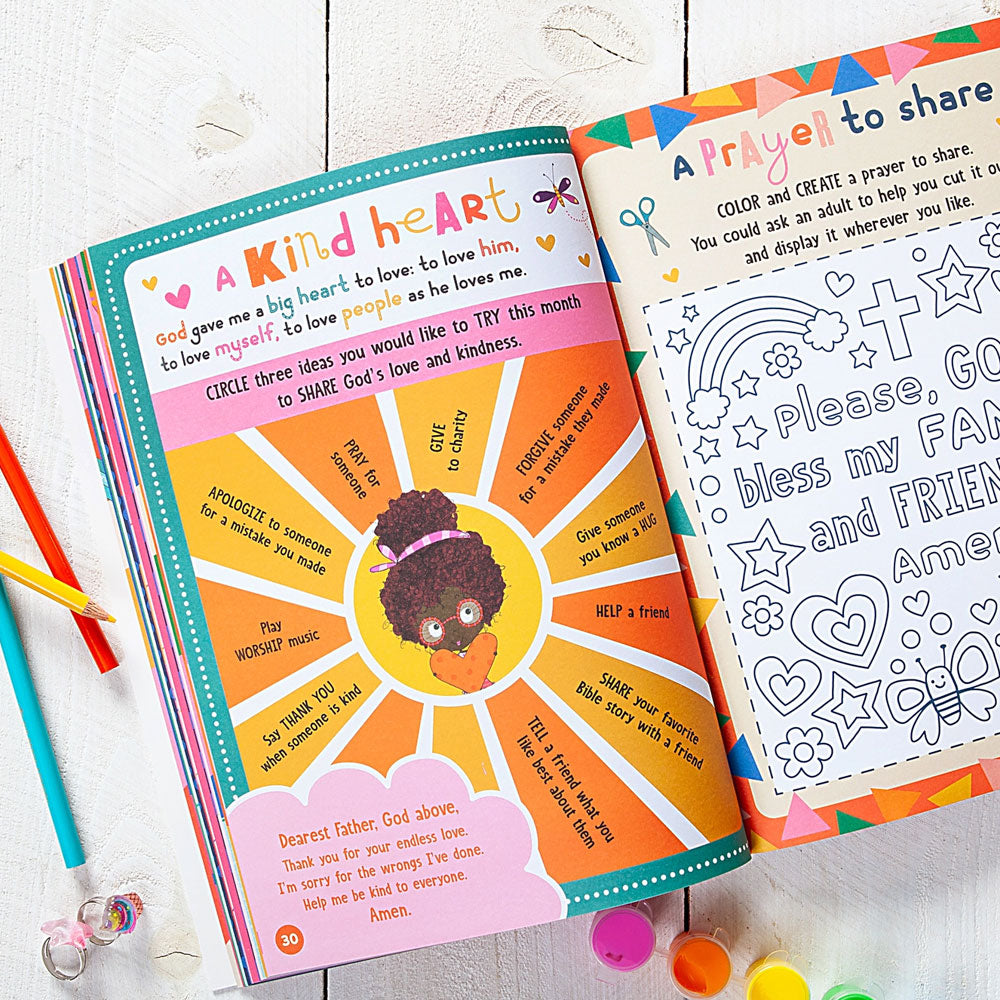 A Kind heArt
God gave me a big heart to love: to love him,
to love myself, to love people as he loves me.
CIRCLE three ideas you would like to TRY this month
to SHARE God's love and kindness.
Say THANK YOU
when someone is kind
Play
WORSHIP music
APOLOGIZE to someone
for a mistake you made
PRAY for
someone
GIVE
to charity
FORGIVE someone
for a mistake they made
Give someone
you know a HUG
HELP a friend
SHARE your favorite
Bible story with a friend
TELL a friend what you
like best about them
Dearest Father, God above,
Thank you for your endless love.
I'm sorry for the wrongs I've done.
Help me be kind to everyone.
Amen.
30
A PrAyeR to share
COLOR and CREATE a prayer to share.
You could ask an adult to help you cut it
and display it wherever you like.
Please,
bless my
and